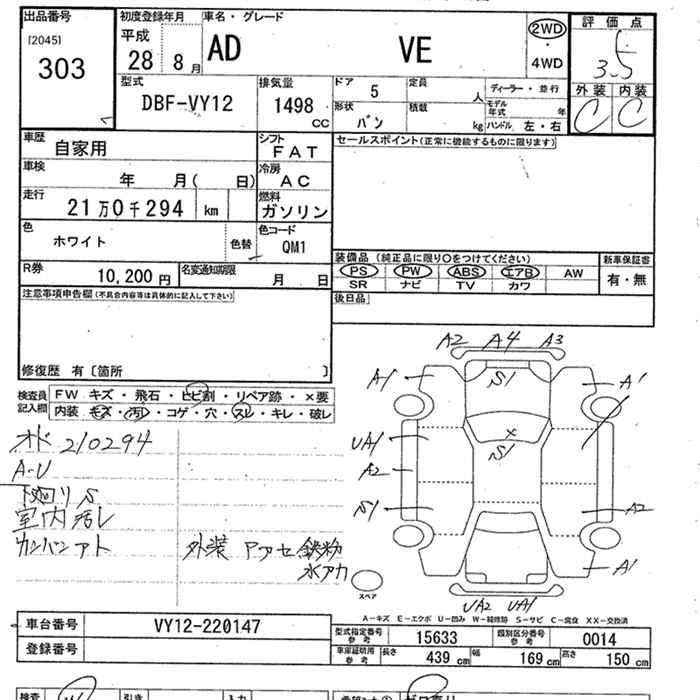 出品番号
[2045]
303
初度登録年月
平成
28 8月
車名・グレード
AD VE
2WD
・
4WD
評価点
3.5
外装 内装
C C
型式
DBF-VY12
排気量
1498 CC
ドア 5
定員 人
形状 バン
積載 kg
ディーラー・並行
モデル年式 年
ハンドル 左・右
車歴 自家用
シフト FAT
セールスポイント(正常に機能するものに限ります)
車検 年 月( 日)
冷房 AC
走行 21万0千294 km
燃料 ガソリン
色 ホワイト 色替
色コード QM1
装備品 (純正品に限り○をつけてください)
PS PW ABS エアB AW
SR ナビ TV カワ
新車保証書
有・無
R券 10,200円
名変通知期限 月 日
後日品
注意事項申告欄(不具合内容等は具体的に記入して下さい)
修復歴 有〔箇所 〕
検査員記入欄
FW キズ・飛石・ヒビ割・リペア跡・×要
内装・キズ・汚レ・コゲ・穴・スレ・キレ・破レ
オド 210294
A-U
下廻リS
室内汚レ
カンバンアト
外装 アクセ 鉄粉
水アカ
A2 A4 A3
A1 S1 A1
UA1 × S1
A2
S1 A2
A1
UA2 UA1
スペア
A-キズ E-エクボ U-凹み W-補修跡 S-サビ C-腐食 XX-交換済
車台番号 VY12-220147
登録番号
型式指定番号 参考 15633
類別区分番号 参考 0014
車庫証明用 参考 長さ 439cm 幅 169cm 高さ 150cm
検査
引き
入力